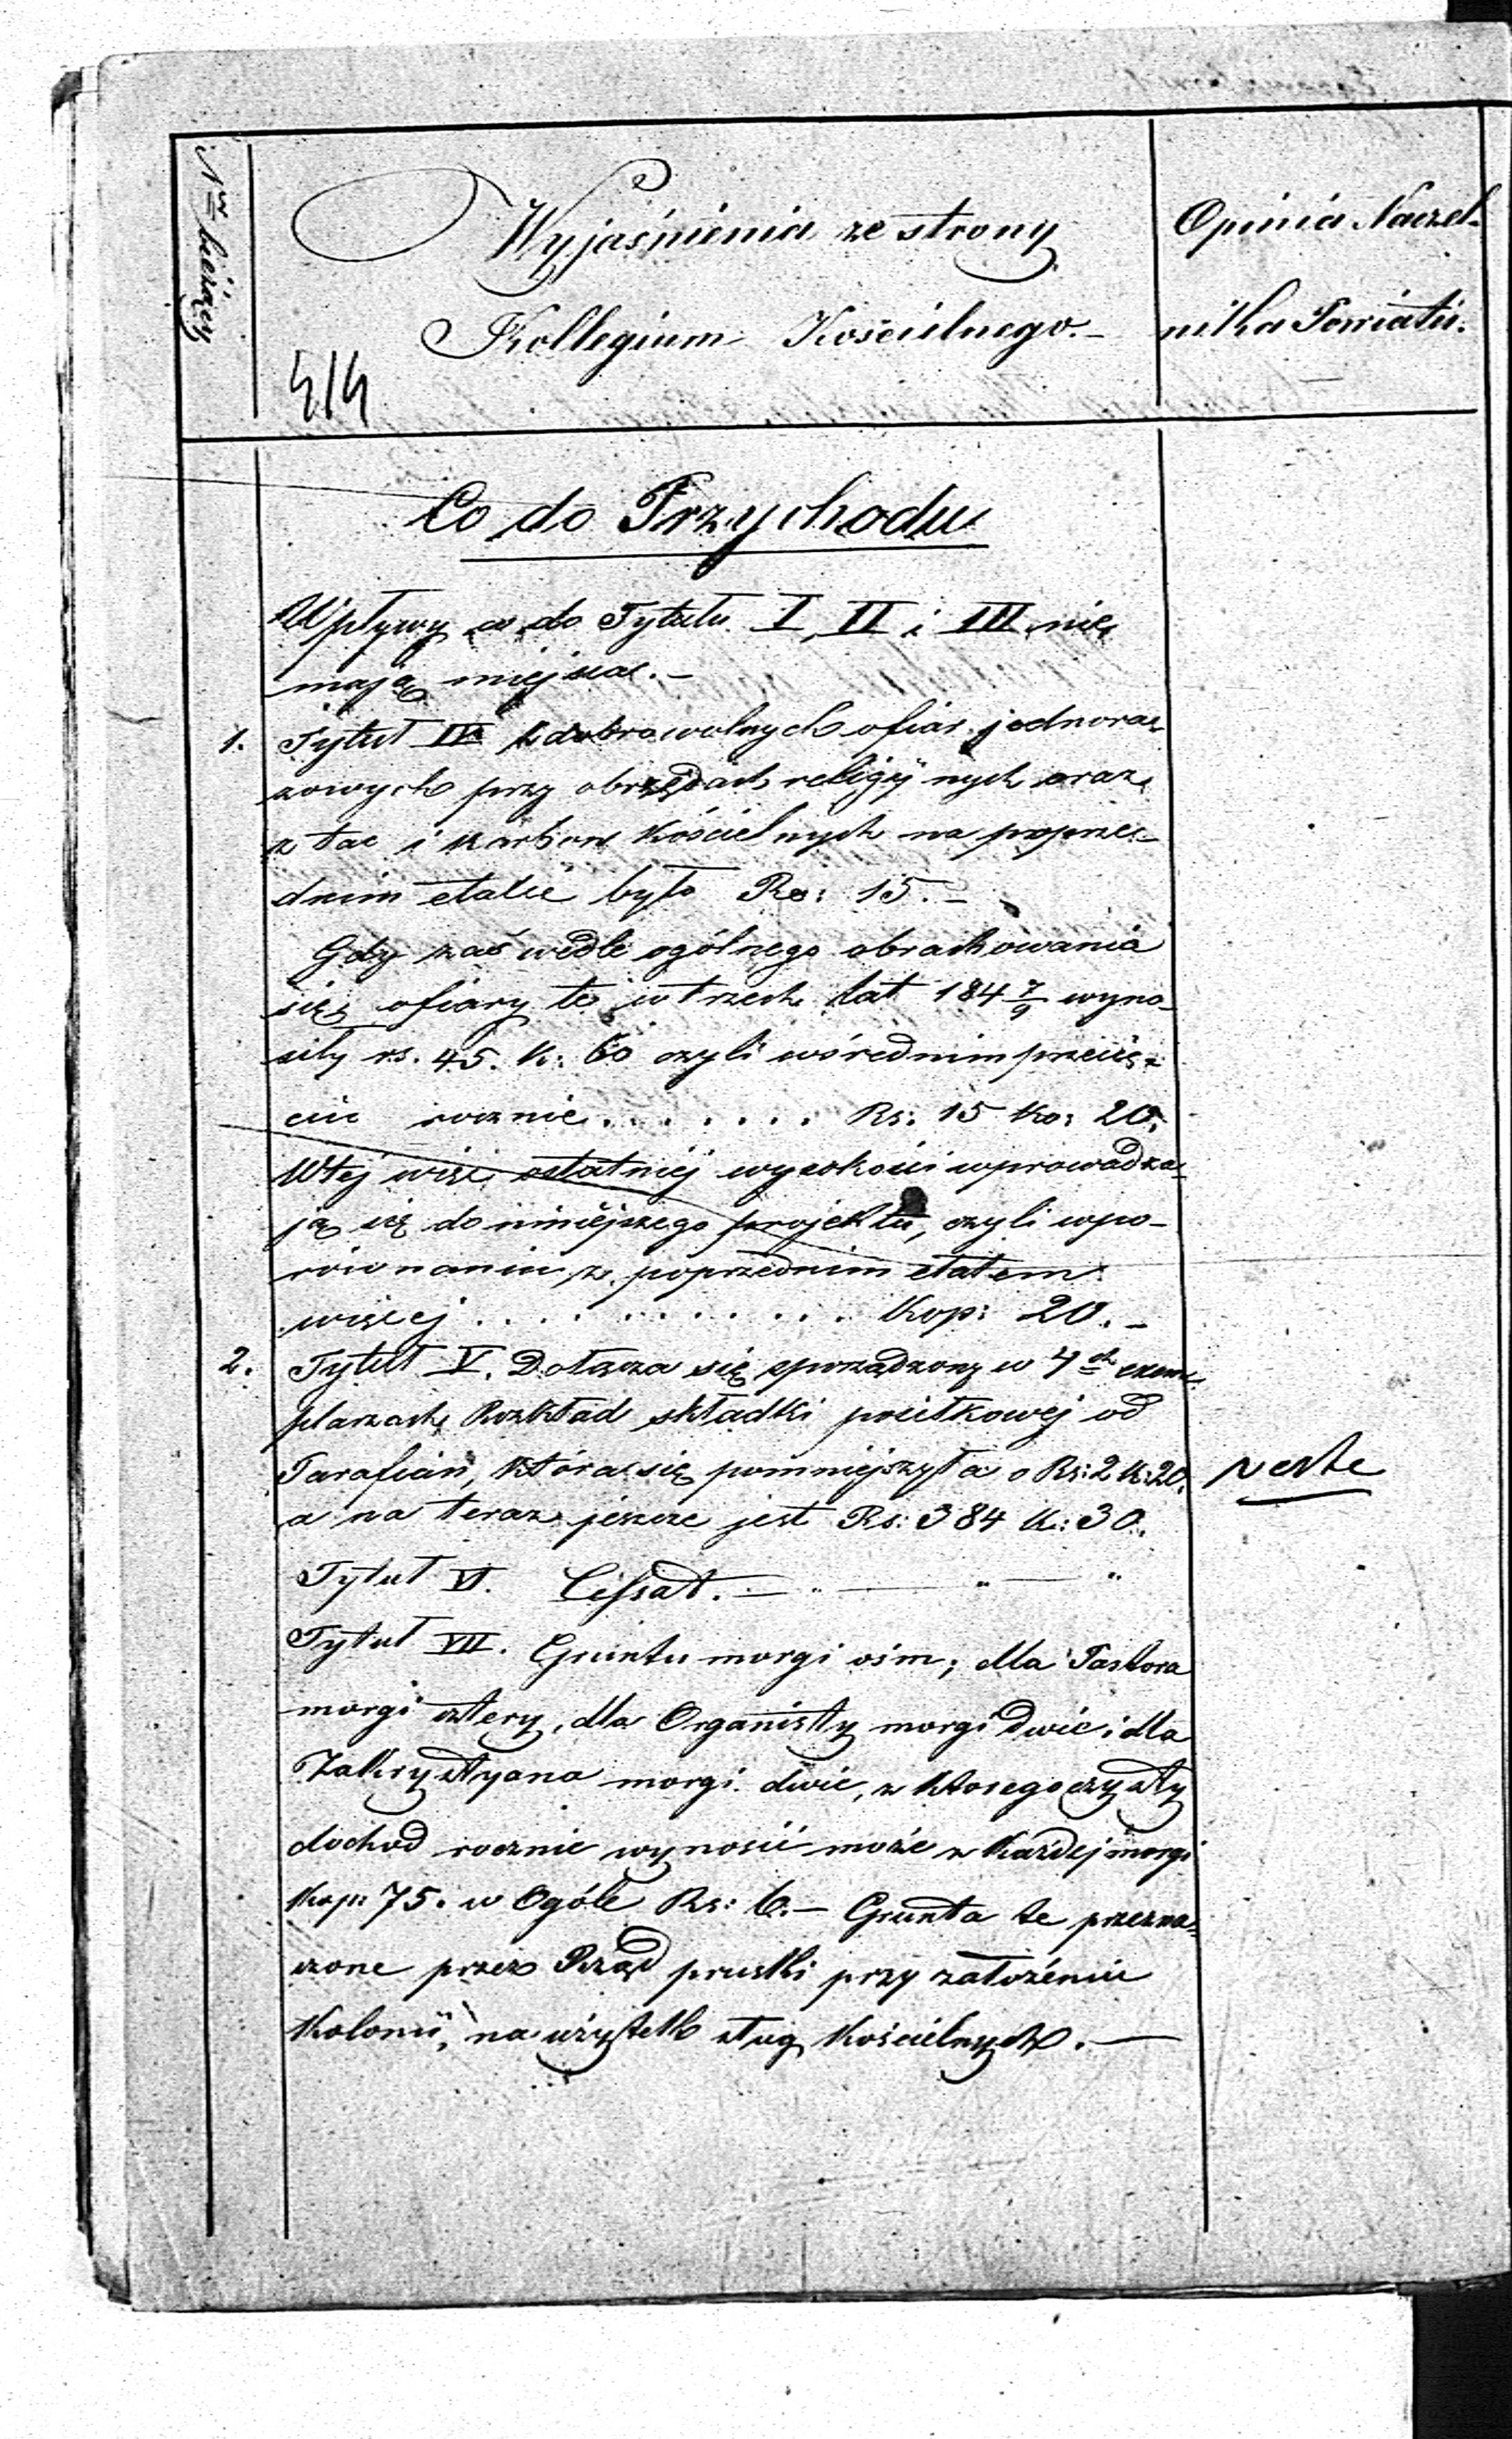 Nr bieżący
Wyjaśnienia ze strony
Kollegium Kościelnego.-
Opinia Naczel-
nika Powiatu.
414
Co do Przychodu
Wpływy co do Tytułu I, II i III nie
mają miejsca.-
1. Tytuł IV z dobrowolnych ofiar jednora-
zowych przy obrzędach religijnych oraz
z tac i skarbon kościelnych na poprze-
dnim etacie było Rs: 15.-
Gdy zaś wedle ogólnego obrachowania
się, ofiary te w trzech lat 184 7/9 wyno-
siły rs. 45. k: 60 czyli wśrednim przecię-
ciu rocznie . . . . . . . Rs: 15 ko: 20.
Wtej więc ostatniej wysokości wprowadza-
ją się do niniejszego projektu, czyli wpo-
równaniu z poprzednim etatem
więcej . . . . . . . . . . . . Kop: 20.-
2. Tytuł V. Dołącza się sporządzony w 4ch exem-
plarzach Rozkład składki posiłkowej od
Parafian, która się pomniejszyła o Rs: 2 k: 20.
a na teraz jeszcze jest Rs: 384 k: 30.
Tytuł VI. Cessat. — " — " — "
Tytuł VII. Gruntu morgi ośm; dla Pastora
morgi cztery, dla Organisty morgi dwie i dla
Zakrystyana morgi dwie, z którego czysty
dochod rocznie wynosić może z każdej morgi
kop: 75. w Ogóle Rs: 6.- Grunta te przezna-
czone przez Rząd pruski przy założeniu
Kolonii, na użytek sług kościelnych.—